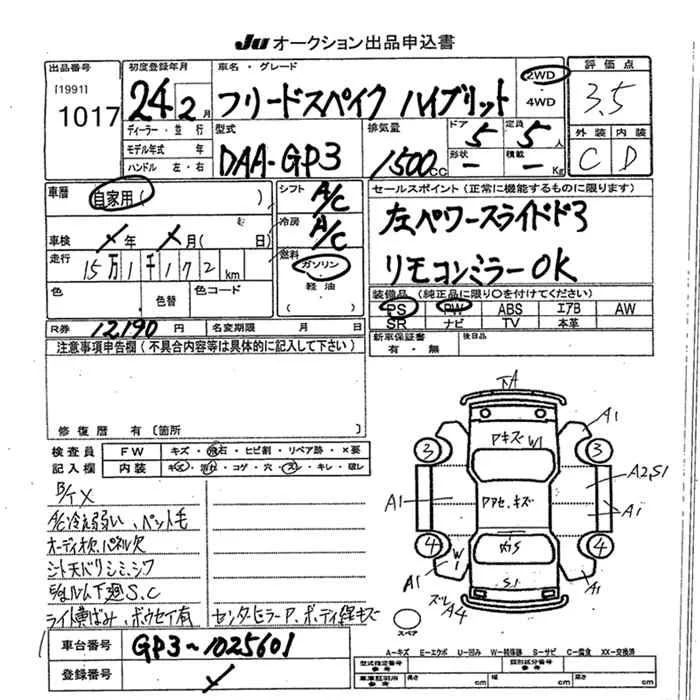 Ju オークション出品申込書
出品番号 初度登録年月 車名・グレード 2WD 評価点
[1991] 1017 24年 2月 フリードスペイク ハイブリット 4WD 3.5
ディーラー・並行 型式 排気量 ドア 定員 外装 内装
モデル年式 年 DAA-GP3 1500cc 5 5人 C D
ハンドル 左・右 形状 - 積載 - Kg
車歴 自家用( ) シフト A/C セールスポイント(正常に機能するものに限ります)
冷房 A/C 左パワースライドド3
車検 ×年 ×月( 日)
走行 15万1千172km 燃料 ガソリン リモコンミラーOK
軽油
色 色替 色コード ( ) 装備品(純正品に限り○を付けてください)
PS PW ABS エアB AW
R券 12,190円 名変期限 月 日 SR ナビ TV 本革
注意事項申告欄(不具合内容等は具体的に記入して下さい) 新車保証書 後日品
有・無
修復歴 有〔箇所
検査員 FW キズ・飛石・ヒビ割・リペア跡・×要
記入欄 内装 キズ・汚れ・コゲ・穴・スレ・キレ・破レ
下A
Aキズ W1 A1
3 3
A1 Aアセ、キズ A2,S1
A1
4 4
W1 S1
A1 A1
ズレ A4
スペア
B/T×
A/C冷え弱い、ペット毛
オーディオ欠、パネル欠
シート天バリシミ、シワ
下廻S.C
ライト黄ばみ、ボウセイ有 センターピラーP、ボディ線キズ
車台番号 GP3-1025601
登録番号 ×
A-キズ E-エクボ U-凹み W-補修跡 S-サビ C-腐食 XX-交換済
型式指定番号 参考 類別区分番号 参考
長さ cm 幅 cm 高さ cm